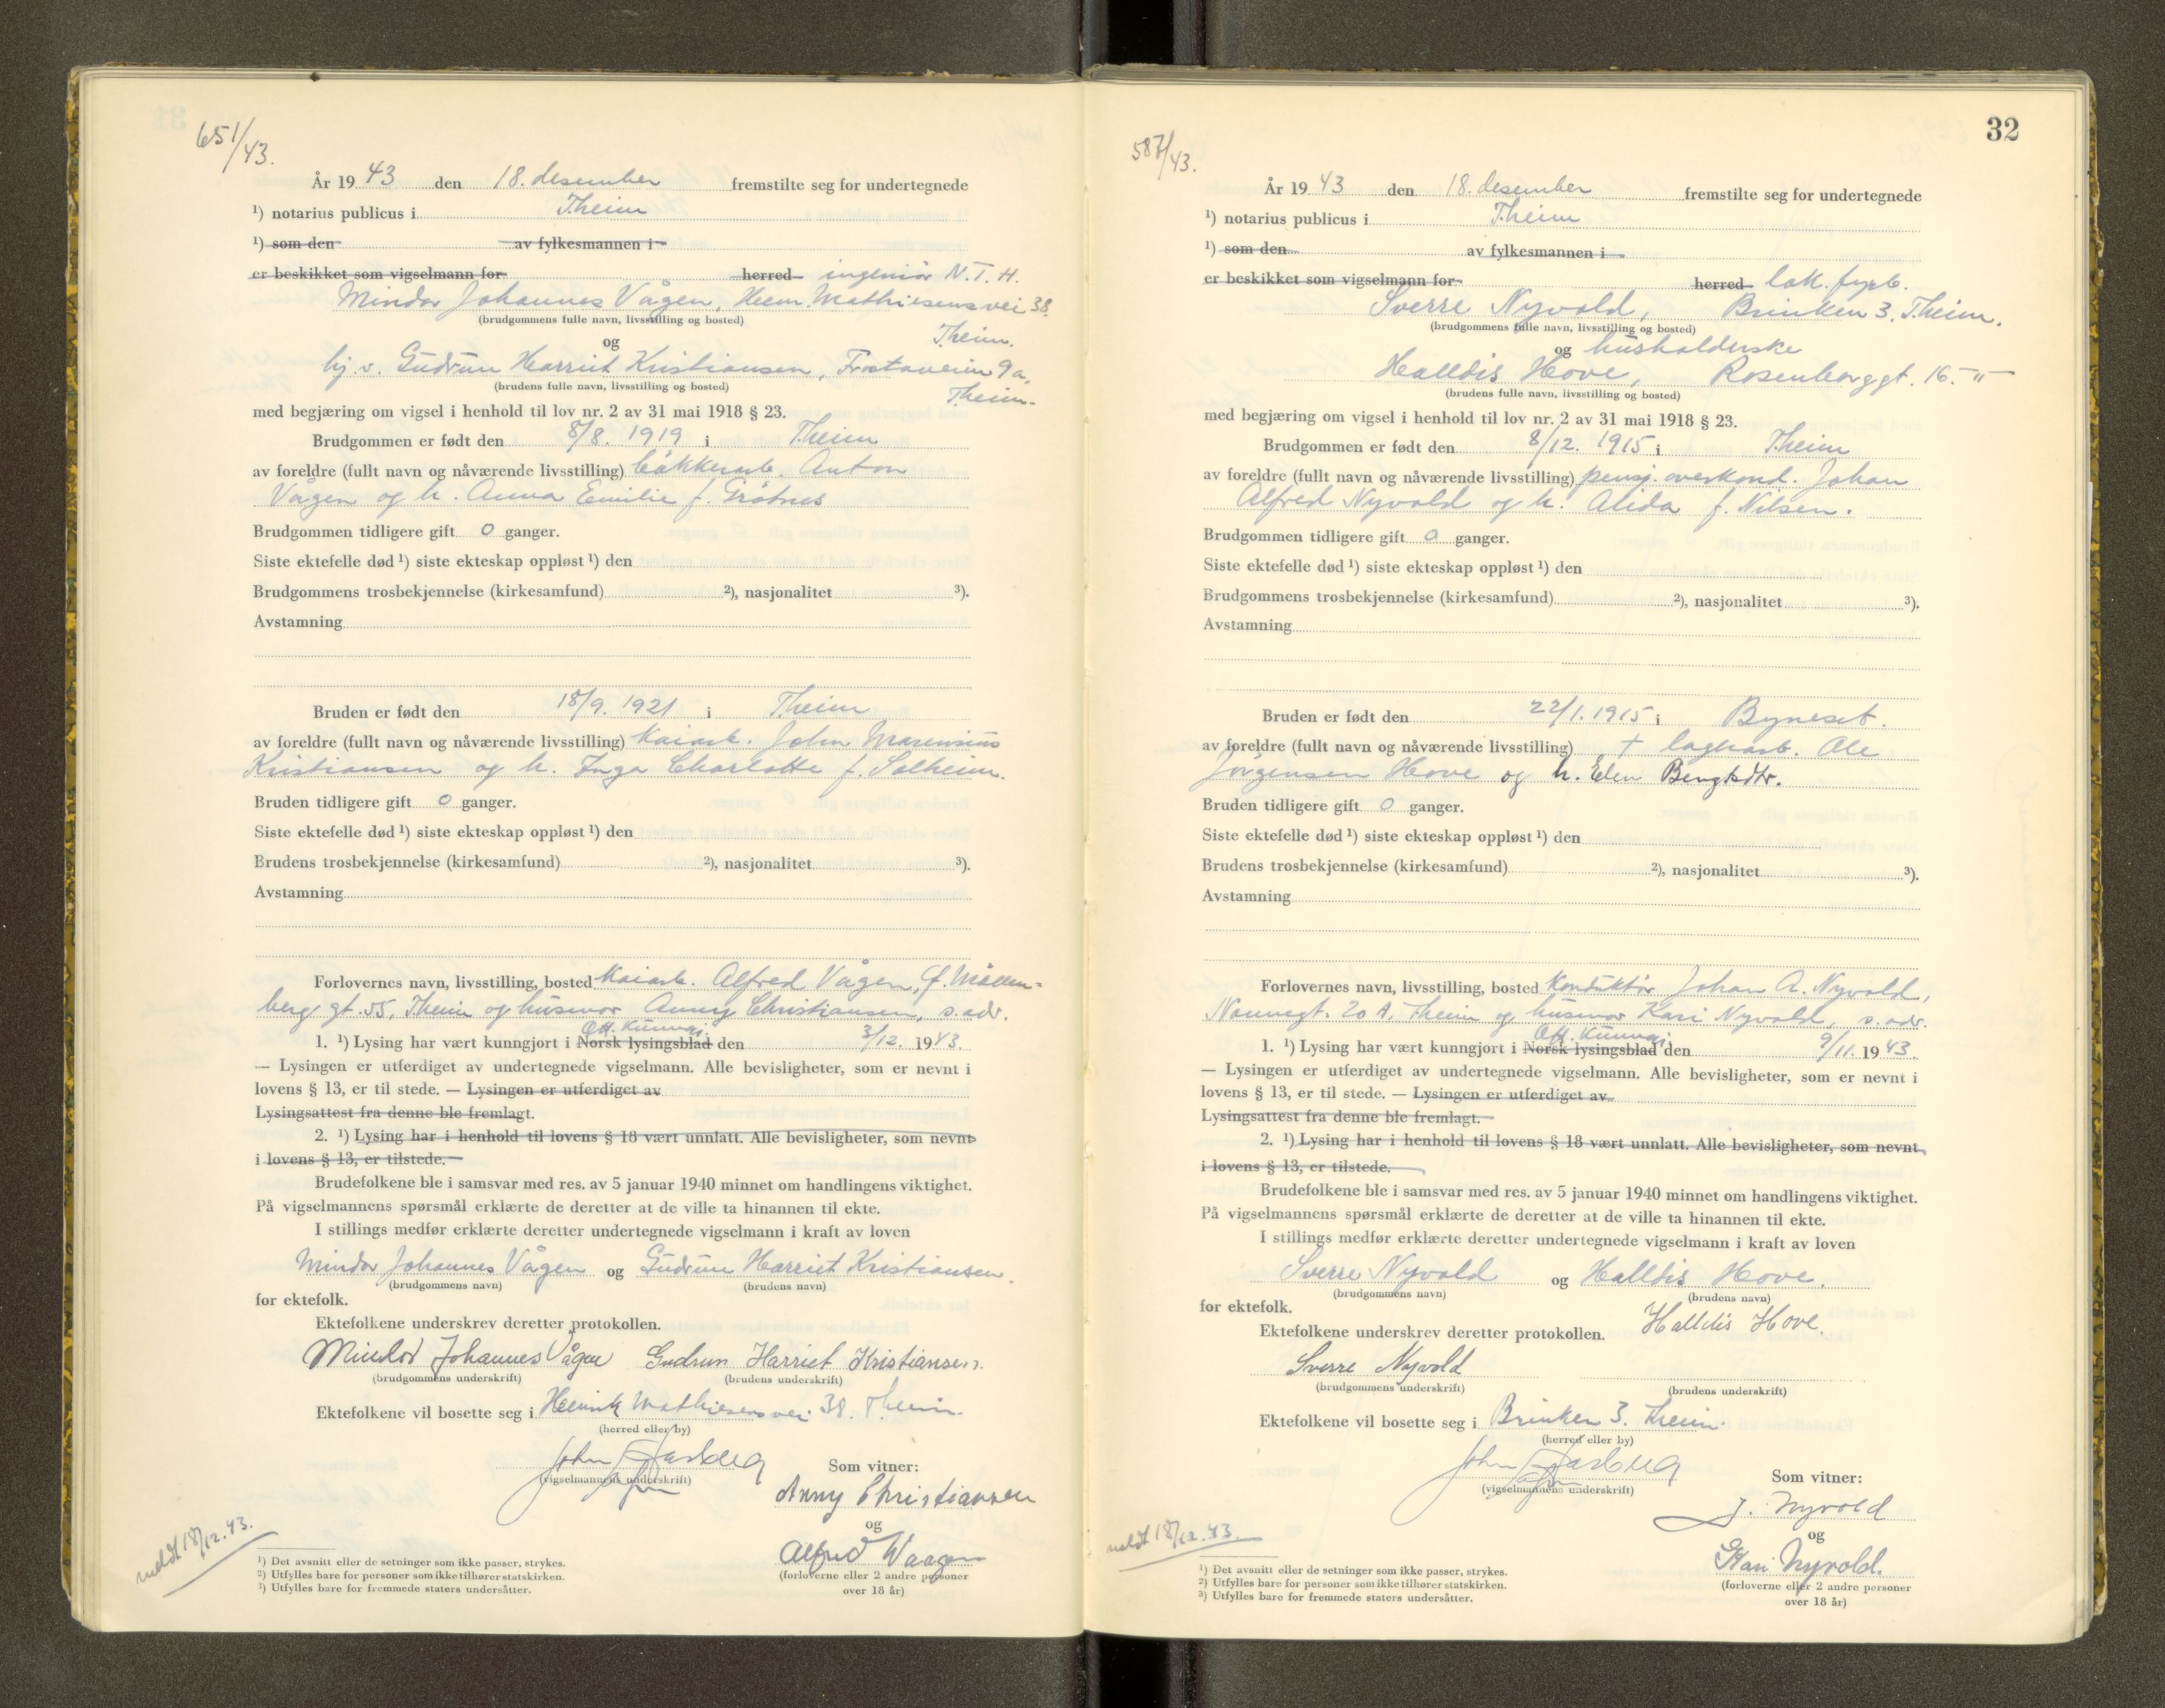 651/43.
År 1943 den 18. desember fremstilte seg for undertegnede
¹) notarius publicus i T.heim
¹) som den av fylkesmannen i
er beskikket som vigselmann for herred ingeniör N.T.H.
Mindor Johannes Vågen, Henr. Mathiesens vei 38.
(brudgommens fulle navn, livsstilling og bosted)
T.heim.
og
hj.v. Gudrun Harriet Kristiansen, Frostaveien 9a,
(brudens fulle navn, livsstilling og bosted)
T.heim.
med begjæring om vigsel i henhold til lov nr. 2 av 31 mai 1918 § 23.
Brudgommen er født den 8/8. 1919 i T.heim
av foreldre (fullt navn og nåværende livsstilling) bakkerarb. Anton
Vågen og h. Anna Emilie f. Grötnes
Brudgommen tidligere gift 0 ganger.
Siste ektefelle død ¹) siste ekteskap oppløst ¹) den
Brudgommens trosbekjennelse (kirkesamfund) ²), nasjonalitet ³).
Avstamning
Bruden er født den 18/9. 1921 i T.heim
av foreldre (fullt navn og nåværende livsstilling) kaiarb. John Marensius
Kristiansen og h. Inga Charlotte f. Solheim.
Bruden tidligere gift 0 ganger.
Siste ektefelle død ¹) siste ekteskap oppløst ¹) den
Brudens trosbekjennelse (kirkesamfund) ²), nasjonalitet ³).
Avstamning
Forlovernes navn, livsstilling, bosted kaiarb. Alfred Vågen, f. Möllen-
berg gt. 55, T.heim og husmor Anny Christiansen, s. adr.
Off. kunngj.
1. ¹) Lysing har vært kunngjort i Norsk lysingsblad den 3/12. 1943.
— Lysingen er utferdiget av undertegnede vigselmann. Alle bevisligheter, som er nevnt i
lovens § 13, er til stede. — Lysingen er utferdiget av
Lysingsattest fra denne ble fremlagt.
2. ¹) Lysing har i henhold til lovens § 18 vært unnlatt. Alle bevisligheter, som nevnt
i lovens § 13, er tilstede.
Brudefolkene ble i samsvar med res. av 5 januar 1940 minnet om handlingens viktighet.
På vigselmannens spørsmål erklærte de deretter at de ville ta hinannen til ekte.
I stillings medfør erklærte deretter undertegnede vigselmann i kraft av loven
Mindor Johannes Vågen og Gudrun Harriet Kristiansen.
(brudgommens navn) (brudens navn)
for ektefolk.
Ektefolkene underskrev deretter protokollen.
Mindor Johannes Vågen Gudrun Harriet Kristiansen.
(brudgommens underskrift) (brudens underskrift)
Ektefolkene vil bosette seg i Henrik Mathiesens vei 38. T.heim.
(herred eller by)
John Aasberg
Som vitner:
(vigselmannens underskrift)
Anny Christiansen
og
Alfred Waagen
(forloverne eller 2 andre personer
over 18 år)
meldt 18/12.43.
¹) Det avsnitt eller de setninger som ikke passer, strykes.
²) Utfylles bare for personer som ikke tilhører statskirken.
³) Utfylles bare for fremmede staters undersåtter.
32
587/43.
År 1943 den 18. desember fremstilte seg for undertegnede
¹) notarius publicus i T.heim
¹) som den av fylkesmannen i
er beskikket som vigselmann for herred lok. fyrb.
Sverre Nyvold, Brinken 3. T.heim.
(brudgommens fulle navn, livsstilling og bosted)
og husholderske
Halldis Hove, Rosenborg gt. 16. -"-
(brudens fulle navn, livsstilling og bosted)
med begjæring om vigsel i henhold til lov nr. 2 av 31 mai 1918 § 23.
Brudgommen er født den 8/12. 1915 i T.heim
av foreldre (fullt navn og nåværende livsstilling) pensj. overkond. Johan
Alfred Nyvold og h. Alida f. Nilsen.
Brudgommen tidligere gift 0 ganger.
Siste ektefelle død ¹) siste ekteskap oppløst ¹) den
Brudgommens trosbekjennelse (kirkesamfund) ²), nasjonalitet ³).
Avstamning
Bruden er født den 22/1. 1915 i Byneset.
av foreldre (fullt navn og nåværende livsstilling) † lagerarb. Ole
Jörgensen Hove og h. Elen Bengtsdtr.
Bruden tidligere gift 0 ganger.
Siste ektefelle død ¹) siste ekteskap oppløst ¹) den
Brudens trosbekjennelse (kirkesamfund) ²), nasjonalitet ³).
Avstamning
Forlovernes navn, livsstilling, bosted konduktör Johan A. Nyvold,
Nonnegt. 20 A, T.heim og husmor Kari Nyvold, s. adr.
Off. kunngj.
1. ¹) Lysing har vært kunngjort i Norsk lysingsblad den 9/11. 1943.
— Lysingen er utferdiget av undertegnede vigselmann. Alle bevisligheter, som er nevnt i
lovens § 13, er til stede. — Lysingen er utferdiget av
Lysingsattest fra denne ble fremlagt.
2. ¹) Lysing har i henhold til lovens § 18 vært unnlatt. Alle bevisligheter, som nevnt
i lovens § 13, er tilstede.
Brudefolkene ble i samsvar med res. av 5 januar 1940 minnet om handlingens viktighet.
På vigselmannens spørsmål erklærte de deretter at de ville ta hinannen til ekte.
I stillings medfør erklærte deretter undertegnede vigselmann i kraft av loven
Sverre Nyvold og Halldis Hove.
(brudgommens navn) (brudens navn)
for ektefolk.
Ektefolkene underskrev deretter protokollen. Halldis Hove.
Sverre Nyvold
(brudgommens underskrift) (brudens underskrift)
Ektefolkene vil bosette seg i Brinken 3. T.heim.
(herred eller by)
John Aasberg
Som vitner:
(vigselmannens underskrift)
J. Nyvold
og
Kari Nyvold.
(forloverne eller 2 andre personer
over 18 år)
meldt 18/12.43.
¹) Det avsnitt eller de setninger som ikke passer, strykes.
²) Utfylles bare for personer som ikke tilhører statskirken.
³) Utfylles bare for fremmede staters undersåtter.